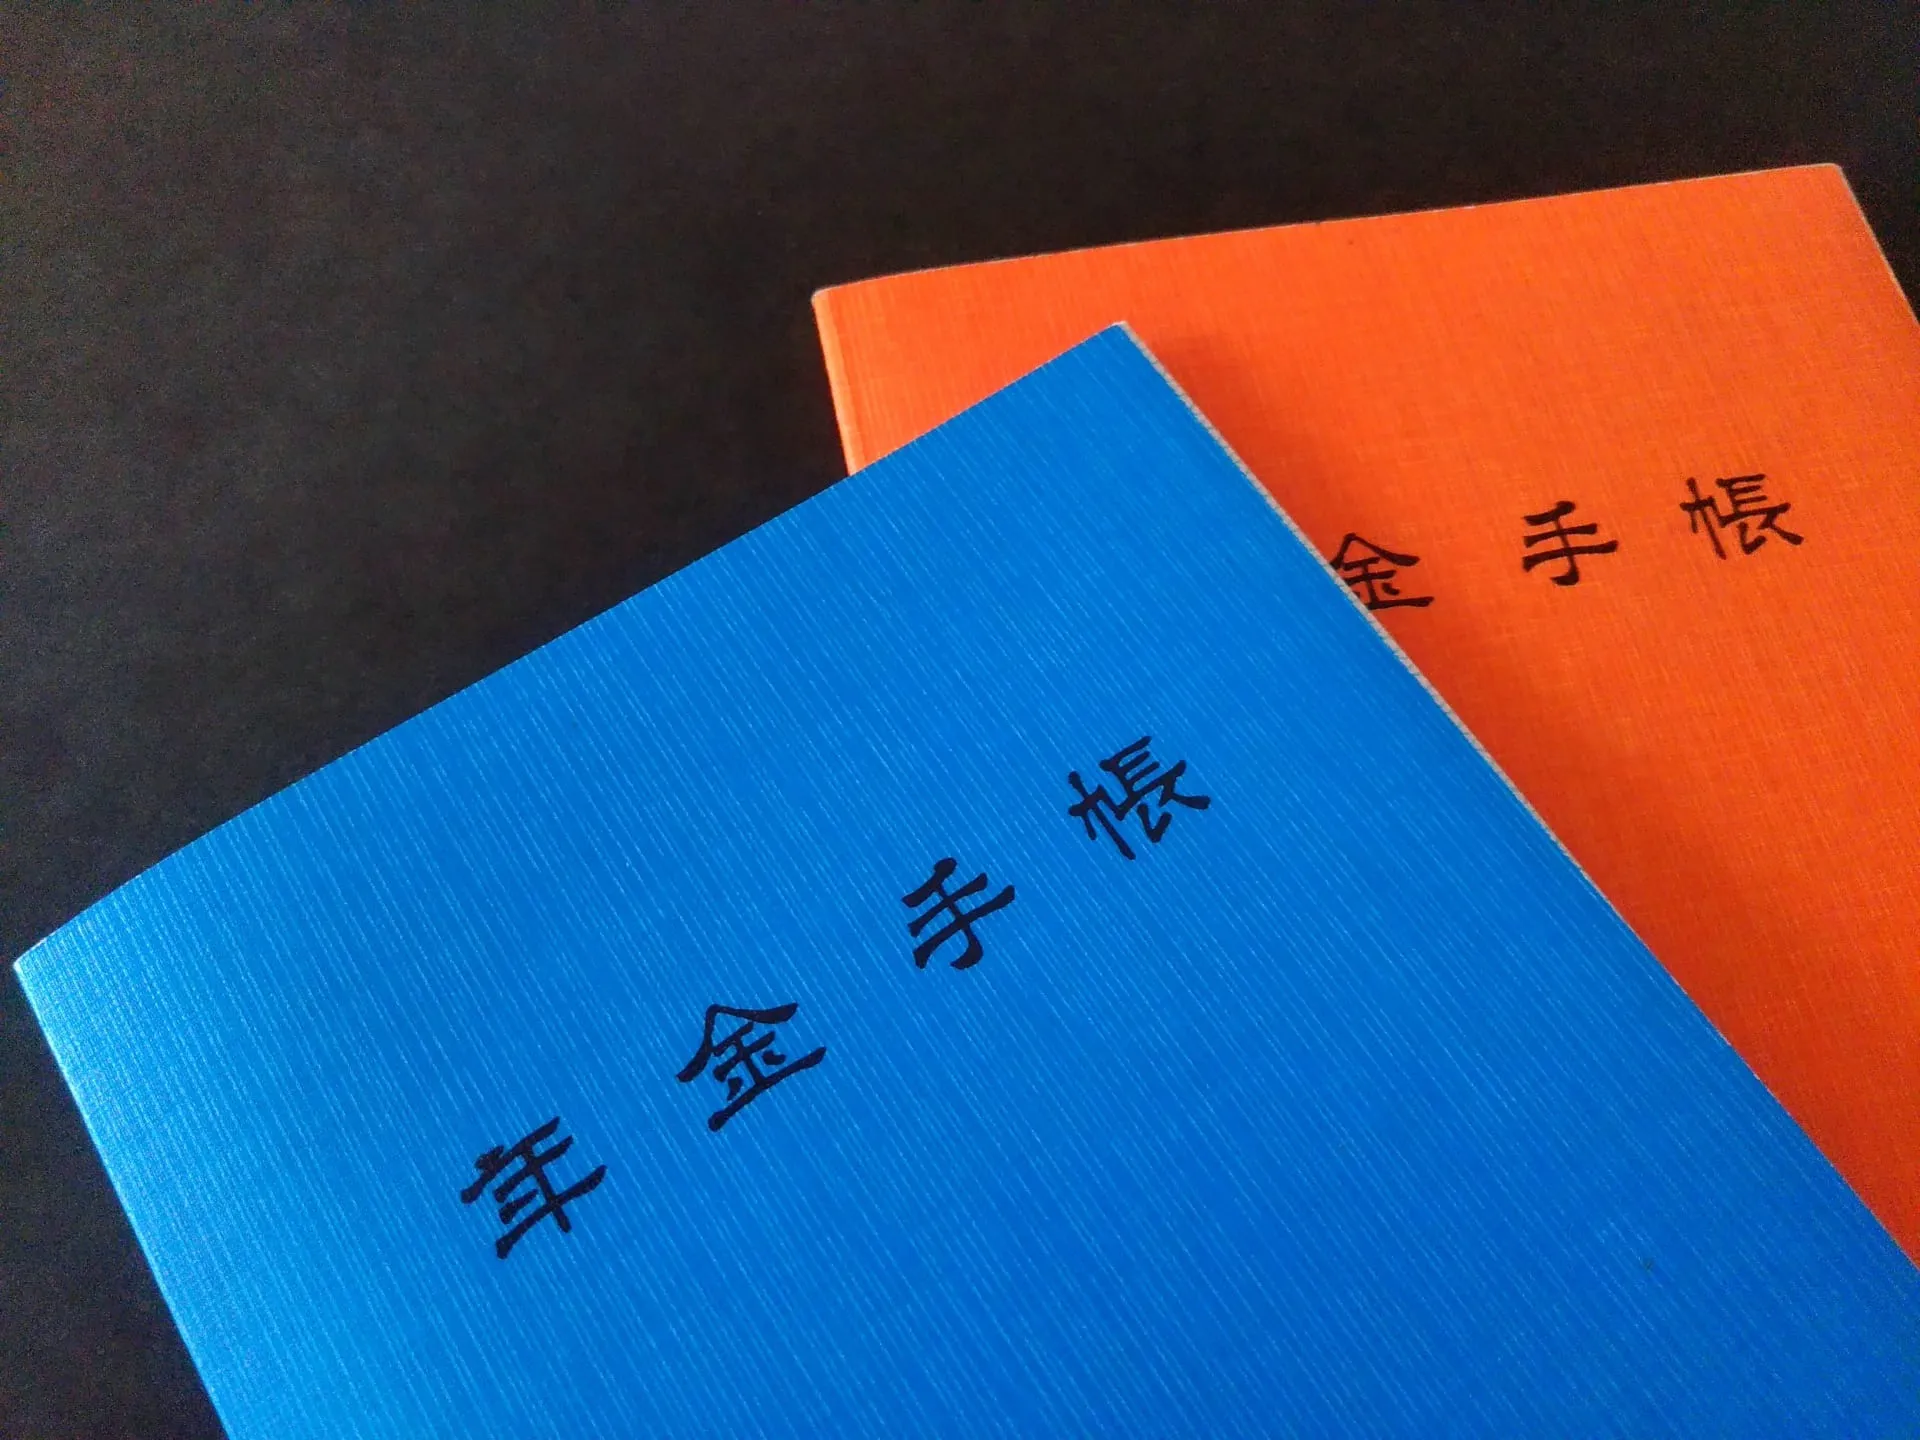 金手帳
年金手帳